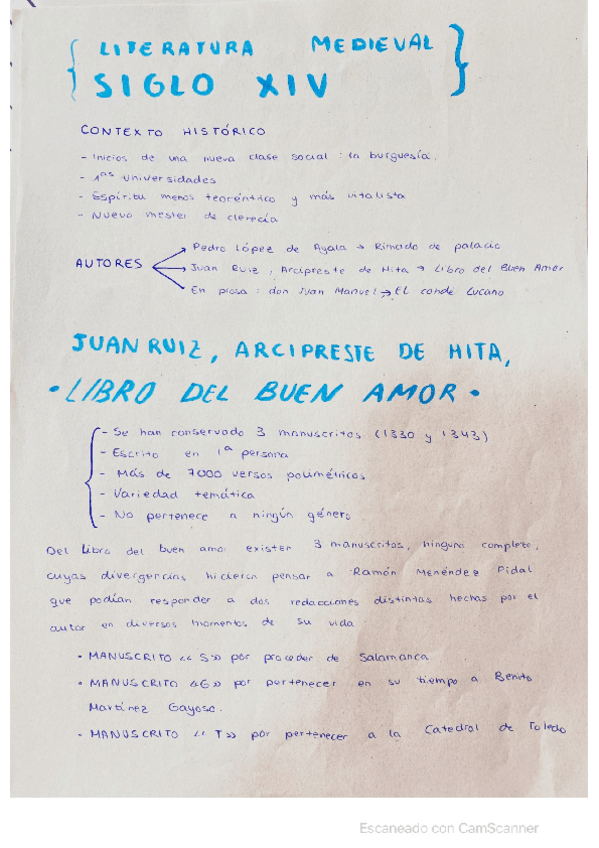 LITERATURA MEDIEVAL
SIGLO XIV
CONTEXTO HISTÓRICO
- Inicios de una nueva clase social : la burguesía.
- 1ªs universidades
- Espíritu menos teocéntrico y más vitalista
- Nuevo mester de clerecía
AUTORES
Pedro López de Ayala → Rimado de palacio
Juan Ruiz, Arcipreste de Hita → Libro del Buen Amor
En prosa : don Juan Manuel → El conde Lucano
JUAN RUIZ, ARCIPRESTE DE HITA,
• LIBRO DEL BUEN AMOR •
- Se han conservado 3 manuscritos (1330 y 1343)
- Escrito en 1ª persona
- Más de 7000 versos polimétricos
- Variedad temática
- No pertenece a ningún género
Del Libro del buen amor existen 3 manuscritos, ninguno completo,
cuyas divergencias hicieron pensar a Ramón Menéndez Pidal
que podían responder a dos redacciones distintas hechas por el
autor en diversos momentos de su vida
• MANUSCRITO << S>> por proceder de Salamanca
• MANUSCRITO <<G>> por pertenecer en su tiempo a Benito
Martínez Gayoso.
• MANUSCRITO << T>> por pertenecer a la Catedral de Toledo
Escaneado con CamScanner